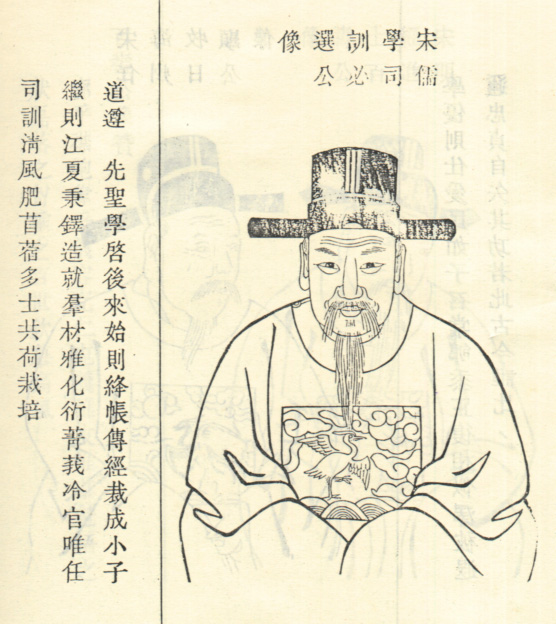 宋儒
學司
訓必
選公
像
道遵　先聖學啓後來始則絳帳傳經裁成小子
繼則江夏秉鐸造就羣材雅化衍菁莪冷官唯任
司訓清風肥苜蓿多士共荷栽培